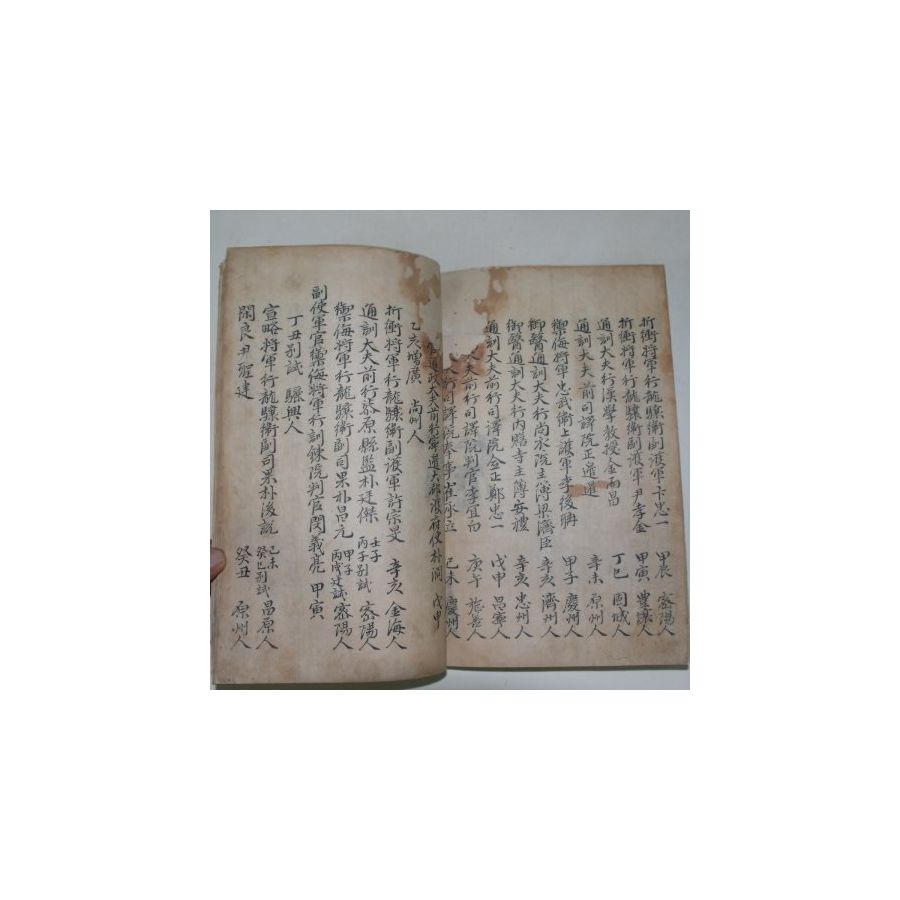 折衝將軍行龍驤衛副護軍卞忠一 甲辰 密陽人
折衝將軍行龍驤衛副護軍尹孝金 甲寅 豊壤人
通訓大夫行漢學教授金而昌 丁巳 固城人
通訓大夫前司譯院正邊 辛未 原州人
禦侮將軍忠武衛上護軍李後 甲子 慶州人
御醫通訓大夫行尚衣院主簿梁濟臣 辛亥 濟州人
御醫通訓大夫行內贍寺主簿安禮 辛亥 忠州人
通訓大夫前行司譯院僉正鄭忠一 戊申 昌寧人
大夫前行司譯院判官李宜白 庚午 旌善人
行司譯院奉事崔承立 己未 慶州人
通政大夫前行寧邊大都護府使朴 戊申
乙亥增廣 尙州人
折衝將軍行龍驤衛副護軍許宗旻 辛亥 金海人
通訓大夫前行泰原縣監朴廷傑 壬子 丙子別試 密陽人
禦侮將軍行龍驤衛副司果朴昌元 甲子 丙戌廷試 密陽人
副使軍官禦侮將軍行訓鍊院判官閔義亮 甲寅
丁丑別試 驪興人
宣略將軍行龍驤衛副司果朴後說 己未 癸巳別試 昌原人
閑良尹聖建 癸丑 原州人